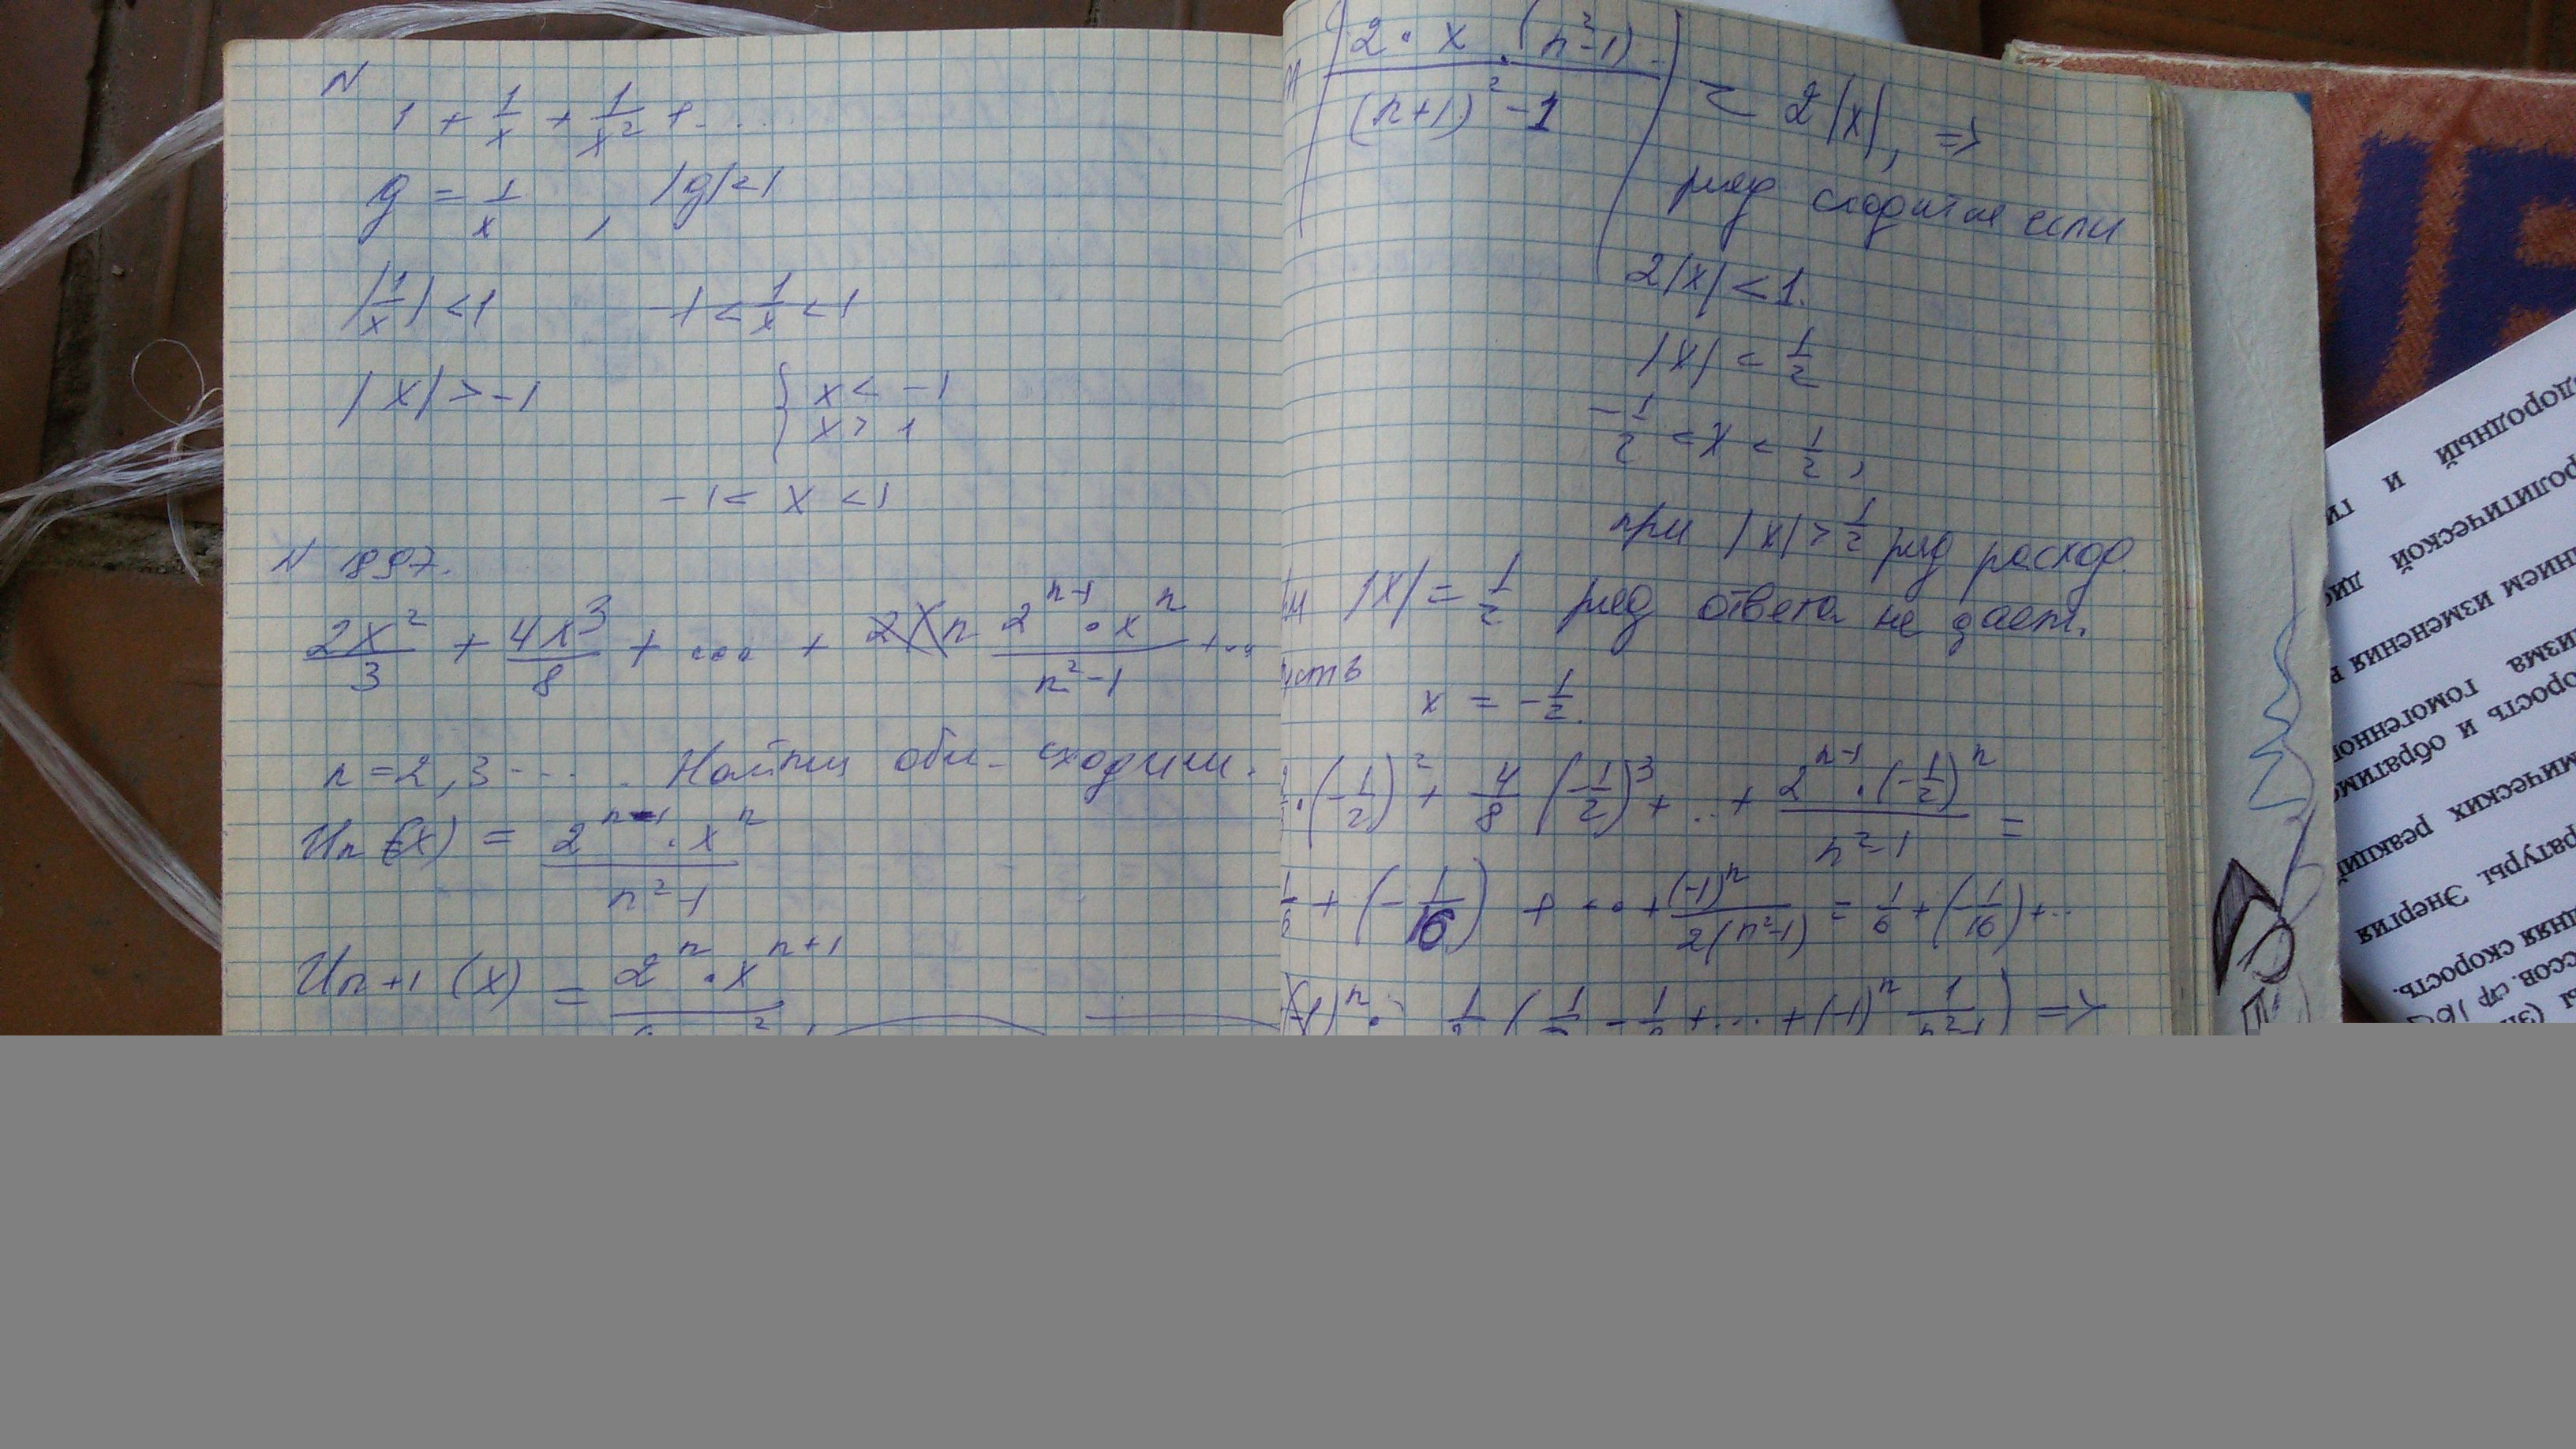 N
1 + 1/x + 1/x² + ....
g = 1/x , |g|<1
|1/x| < 1 -1 < 1/x < 1
|x| > -1 { x < -1
x > 1
-1 < x < 1
N 1897.
2x²/3 + 4x³/8 + ... + (2^(n-1) · x^n)/(n²-1) + ...
n = 2, 3 .... Найти обл. сходим.
Un(x) = (2^(n-1) · x^n)/(n²-1)
Un+1 (x) = 2^n · x^(n+1)
|(2 · x · (n²-1))/((n+1)²-1)| = 2|x|, =>
ряд сходится если
2|x| < 1.
|x| < 1/2
-1/2 < x < 1/2 ,
при |x| > 1/2 ряд расход.
|x| = 1/2 ряд ответа не дает.
усть
x = -1/2.
·(-1/2)² + 4/8 (-1/2)³ + ... + (2^(n-1) · (-1/2)^n)/(n²-1) =
+ (-1/16) + ... + (-1)^n/(2(n²-1)) = 1/6 + (-1/16) + ...
+ ... + (-1)^n 1/(n²-1)) =>
дородный и
ролитической
нием изменения
изма гомогенно
орость и обратим
мических реакций
ратуры Энергия
дняя скорость.
ссов. стр